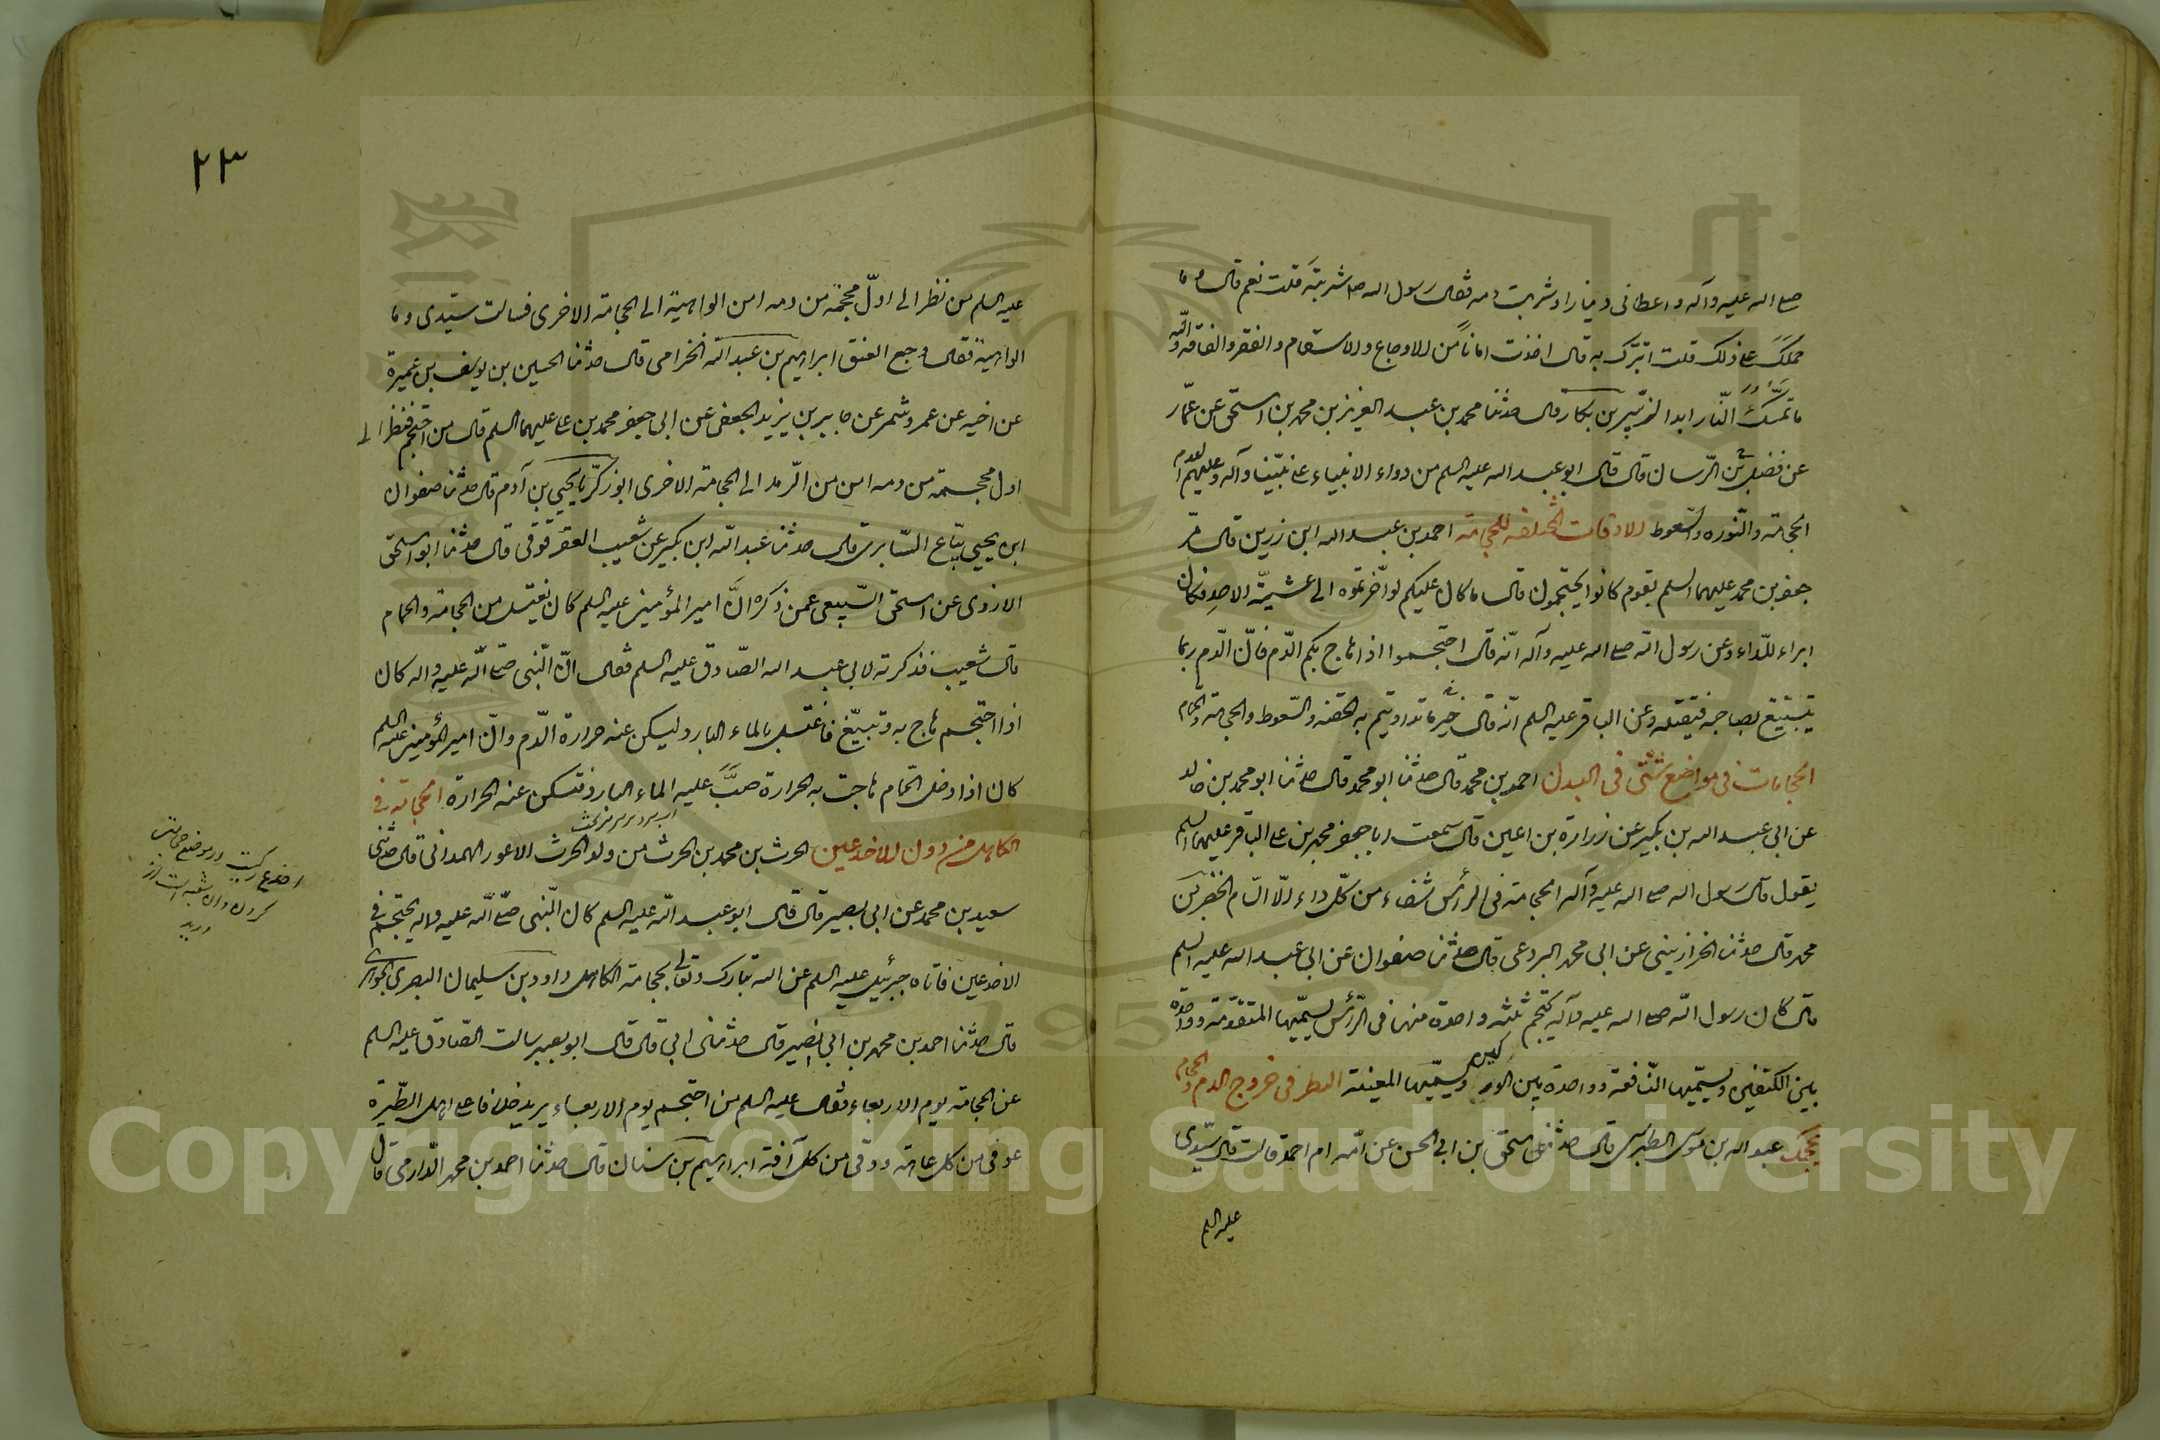 صلى الله عليه وآله واعطانى دينارا وشربت دمه فقال رسول الله ص اشربته قلت نعم قال وما
حملك على ذلك قلت اتبرك به قال اخذت امانا من الاوجاع والاسقام والفقر والفاقة والله
ما تمسك النار ابدا الزبير بن بكار قال حدثنا محمد بن عبد العزيز بن محمد بن اسحق عن عمار
عن فضيل الرسان قال قال ابو عبد الله عليه السلم من دواء الانبياء على نبينا وآله وعليهم السلام
الحجامة والنوره والسعوط الاوقات المختلفه للحجامة احمد بن عبد الله ابن زرين قال مر
جعفر بن محمد عليهما السلم بقوم كانوا يحتجمون قال ما كان عليكم لو اخرتموه الى عشية الاحد فكان
ابراء للداء وعن رسول الله صلى الله عليه وآله انه قال احتجموا اذا هاج بكم الدم فان الدم ربما
يتبيغ بصاحبه فيقتله وعن الباقر عليه السلم انه قال خير ما تداويتم به الحقنه والسعوط والحجامة والحمام
الحجامات فى مواضع شتى فى البدن احمد بن محمد قال حدثنا ابو محمد قال حدثنا ابو محمد بن خالد
عن ابى عبد الله بن بكير عن زرارة بن اعين قال سمعت ابا جعفر محمد بن على الباقر عليهما السلم
يقول قال رسول الله صلى الله عليه وآله الحجامة فى الرأس شفاء من كل داء الا السام الخضر بن
محمد قال حدثنا الخرازينى عن ابى محمد البردعى قال حدثنا صفوان عن ابى عبد الله عليه السلم
قال كان رسول الله صلى الله عليه وآله يحتجم ثلثه واحدة منها فى الرأس يسميها المتقدمة وواحدة
بين الكتفين ويسميها النافعة وواحدة بين الوركين ويسميها المعينة النظر فى خروج الدم والحجام
يحجمك عبد الله بن موسى الطبرى قال حدثنا اسحق بن ابى الحسن عن امه ام احمد قالت قال سيدى
عليه السلم
٢٣
عليه السلم من نظر الى اول محجمة من دمه امن الواهية الى الحجامة الاخرى فسالت سيدى وما
الواهية فقال وجع العنق ابراهيم بن عبد الله الخزامى قال حدثنا الحسين بن يوسف بن عميرة
عن اخيه عن عمرو شمر عن جابر بن يزيد الجعفى عن ابى جعفر محمد بن على عليهما السلم قال من احتجم فنظر الى
اول محجمة من دمه امن من الرمد الى الحجامة الاخرى ابو زكريا يحيى بن آدم قال حدثنا صفوان
ابن يحيى بياع السابرى قال حدثنا عبد الله ابن بكير عن شعيب العقرقوقى قال حدثنا ابو اسحق
الازدى عن اسحق السبيعى عمن ذكره ان امير المؤمنين عليه السلم كان يغتسل من الحجامة والحمام
قال شعيب فذكرته لابى عبد الله الصادق عليه السلم فقال ان النبى صلى الله عليه واله كان
اذا احتجم هاج به وتبيغ فاغتسل بالماء البارد ليسكن عنه حرارة الدم وان امير المؤمنين عليه السلم
كان اذا دخل الحمام هاجت به الحرارة صب عليه الماء البارد فتسكن عنه الحرارة الحجامة فى
الكاهل من دون الاخدعين الحرث بن محمد بن الحرث من ولد الحرث الاعور الهمدانى قال حدثنى
سعيد بن محمد عن ابى بصير قال قال ابو عبد الله عليه السلم كان النبى صلى الله عليه واله يحتجم فى
الاخدعين فاتاه جبرئيل عليه السلم عن الله تبارك وتعالى بحجامة الكاهل داود بن سليمان البصرى الجواهرى
قال حدثنا احمد بن محمد بن ابى نصير قال حدثنى ابى قال قال ابو بصير سالت الصادق عليه السلم
عن الحجامة يوم الاربعاء فقال عليه السلم من احتجم يوم الاربعاء يريد خلافا على اهل الطيرة
عوفى من كل عاهة ووقى من كل آفة ابراهيم بن سنان قال حدثنا احمد بن محمد الدارمى قال
اخدع ركيست در موضع حجامت
كردن وان شعبه است از
وريد
Copyright © King Saud University
195